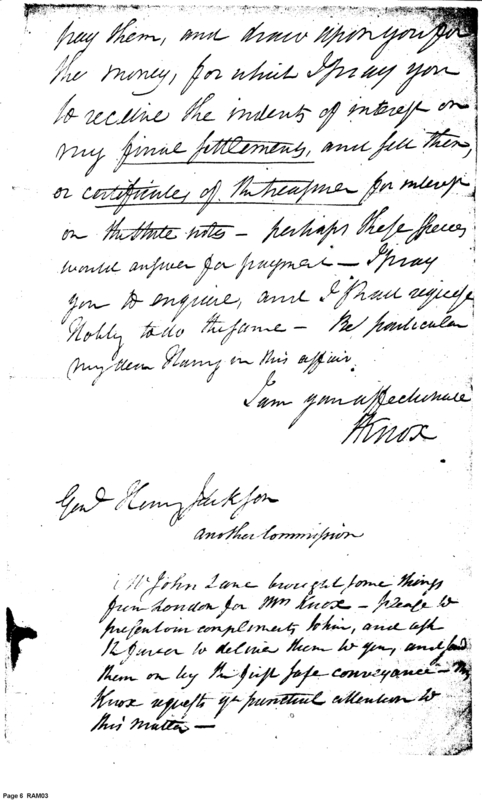 pay them, and draw upon you for
the money, for which I pray you
to receive the indents of interest on
my final settlements, and sell them,
or certificates of the treasurer for interest
on the state notes – perhaps these species
would answer for payment – I pray
you to enquire, and I shall request
Nobly to do the same – Be particular
my dear Harry in this affair.
I am your affectionate
HKnox
Genl Henry Jackson
another Commission
Mr John Lane brought some things
from London for Mrs Knox – please to
present our compliments to him, and ask
the favor to deliver them to you, and send
them on by the first safe conveyance – Mrs
Knox requests yr punctual attention to
this matter –
Page 6 RAM03